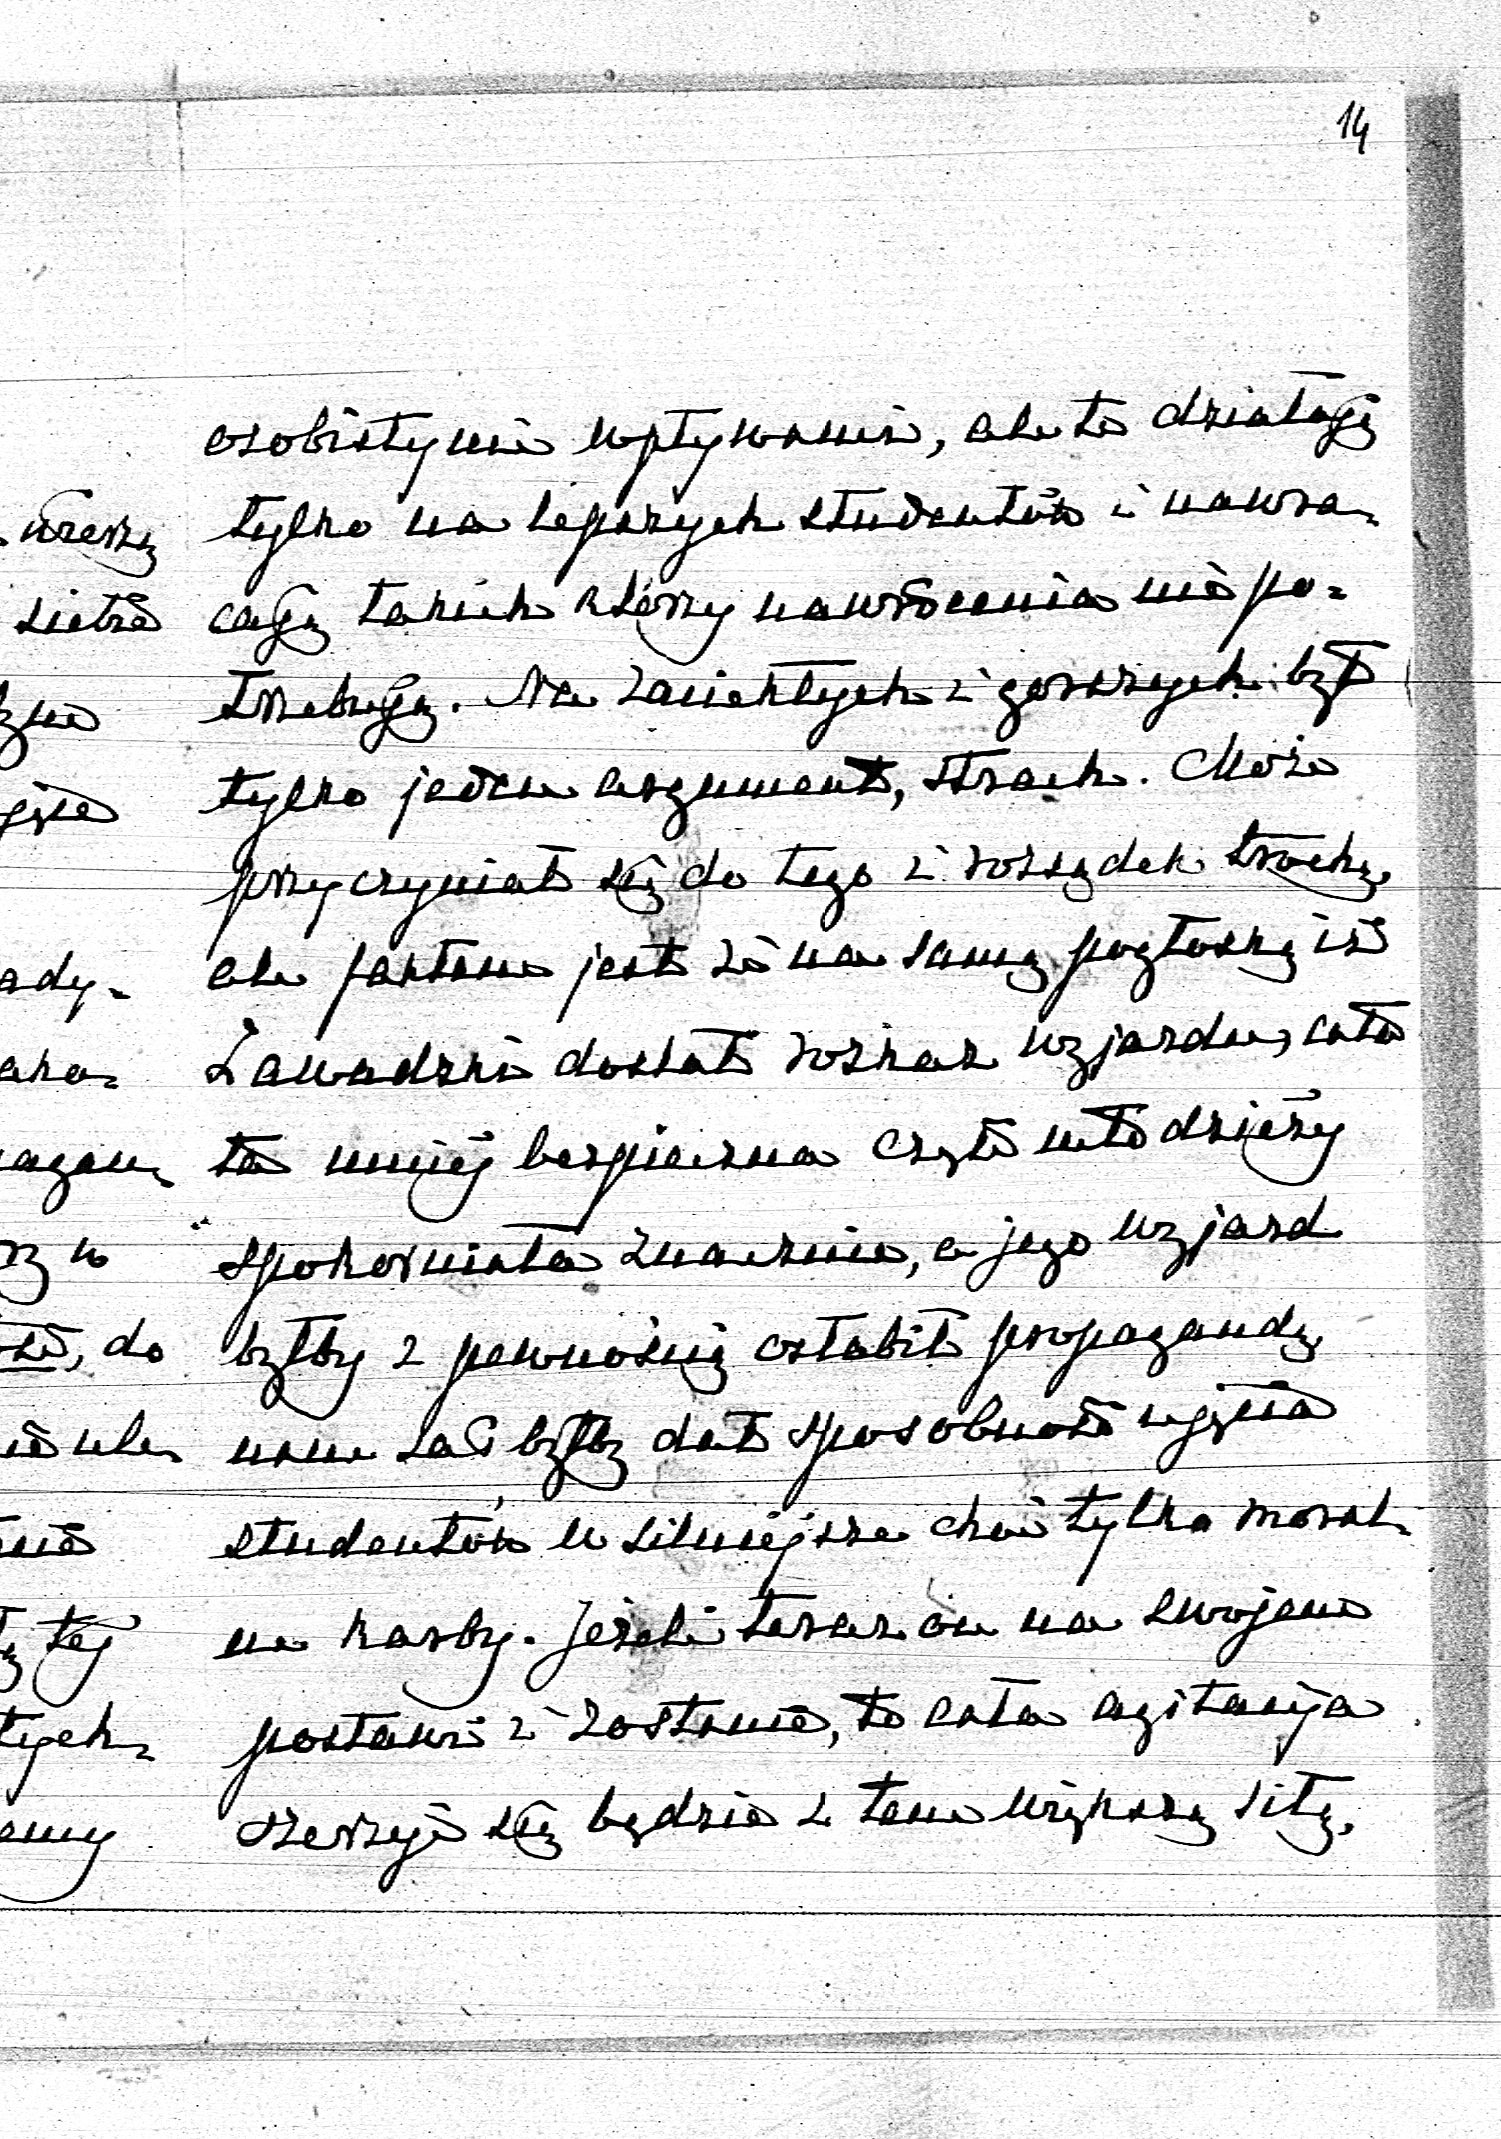 14
osobistymi wpływami, ale te działają
tylko na lepszych studentów i nawra-
cają takich którzy nawrócenia nie po-
trzebują. Na zaciekłych i gorszych był
tylko jeden argument, strach. Może
przyczyniał się do tego i rozsądek trochę,
ale faktem jest że na samą pogłoskę iż
Zawadzki dostał rozkaz wyjazdu, cała
ta mniéj bezpieczna część młodzieży
spokorniała znacznie, a jego wyjazd
byłby z pewnością osłabił propagandę,
nam zaś byłby dał sposobność ujęcia
studentów w silniejsze choć tylko moral-
ne karby. Jeżeli teraz on na swojem
postawi i zostanie, to cała agitacija
szerzyć się będzie z tem większą siłą,